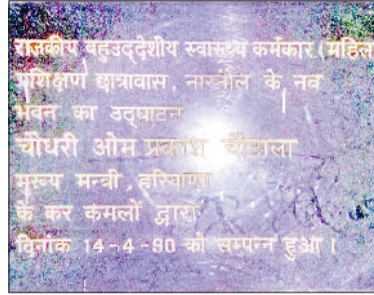 राजकीय बहुउद्देशीय स्वास्थ्य कर्मकार (महिला
प्रशिक्षण छात्रावास, नारनौल के नव
भवन का उद्घाटन
चौधरी ओम प्रकाश चौटाला
मुख्य मन्त्री, हरियाणा
के कर कमलों द्वारा
दिनांक 14-4-90 को सम्पन्न हुआ।